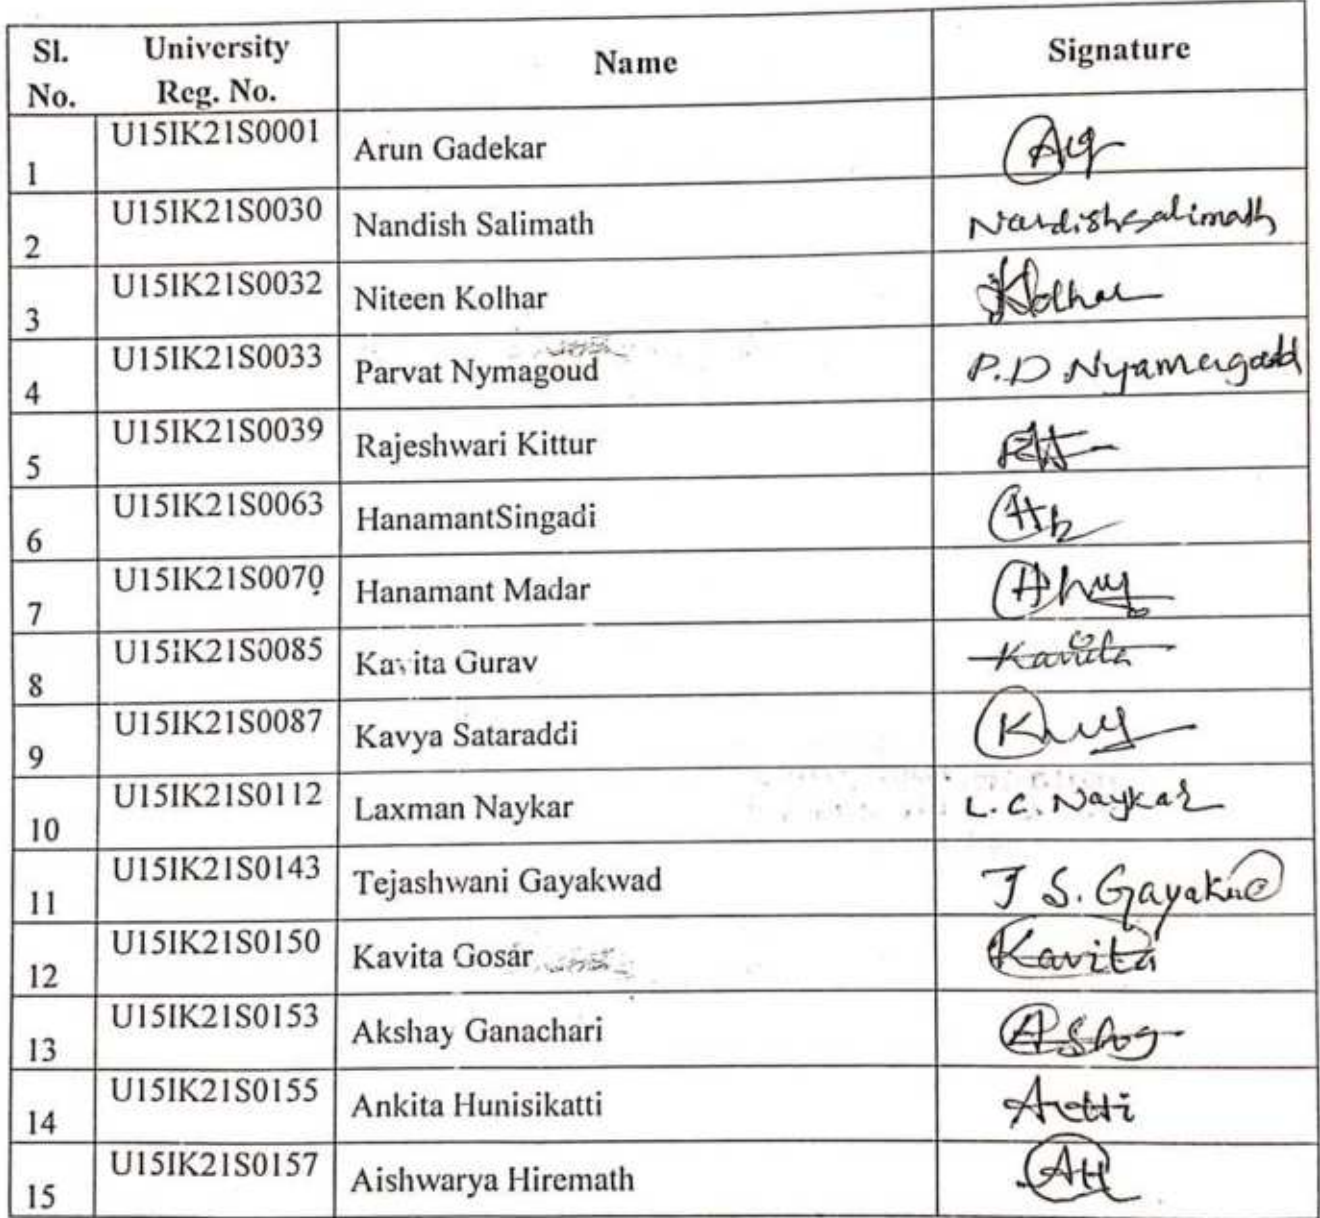 Sl. No. University Reg. No. Name Signature
1 U15IK21S0001 Arun Gadekar
2 U15IK21S0030 Nandish Salimath Nandishsalimath
3 U15IK21S0032 Niteen Kolhar Kolhar
4 U15IK21S0033 Parvat Nymagoud P.D Nyamagodd
5 U15IK21S0039 Rajeshwari Kittur
6 U15IK21S0063 HanamantSingadi
7 U15IK21S0070 Hanamant Madar
8 U15IK21S0085 Kavita Gurav Kavita
9 U15IK21S0087 Kavya Sataraddi
10 U15IK21S0112 Laxman Naykar L.C. Naykar
11 U15IK21S0143 Tejashwani Gayakwad T S. Gayakwad
12 U15IK21S0150 Kavita Gosar Kavita
13 U15IK21S0153 Akshay Ganachari
14 U15IK21S0155 Ankita Hunisikatti
15 U15IK21S0157 Aishwarya Hiremath AH